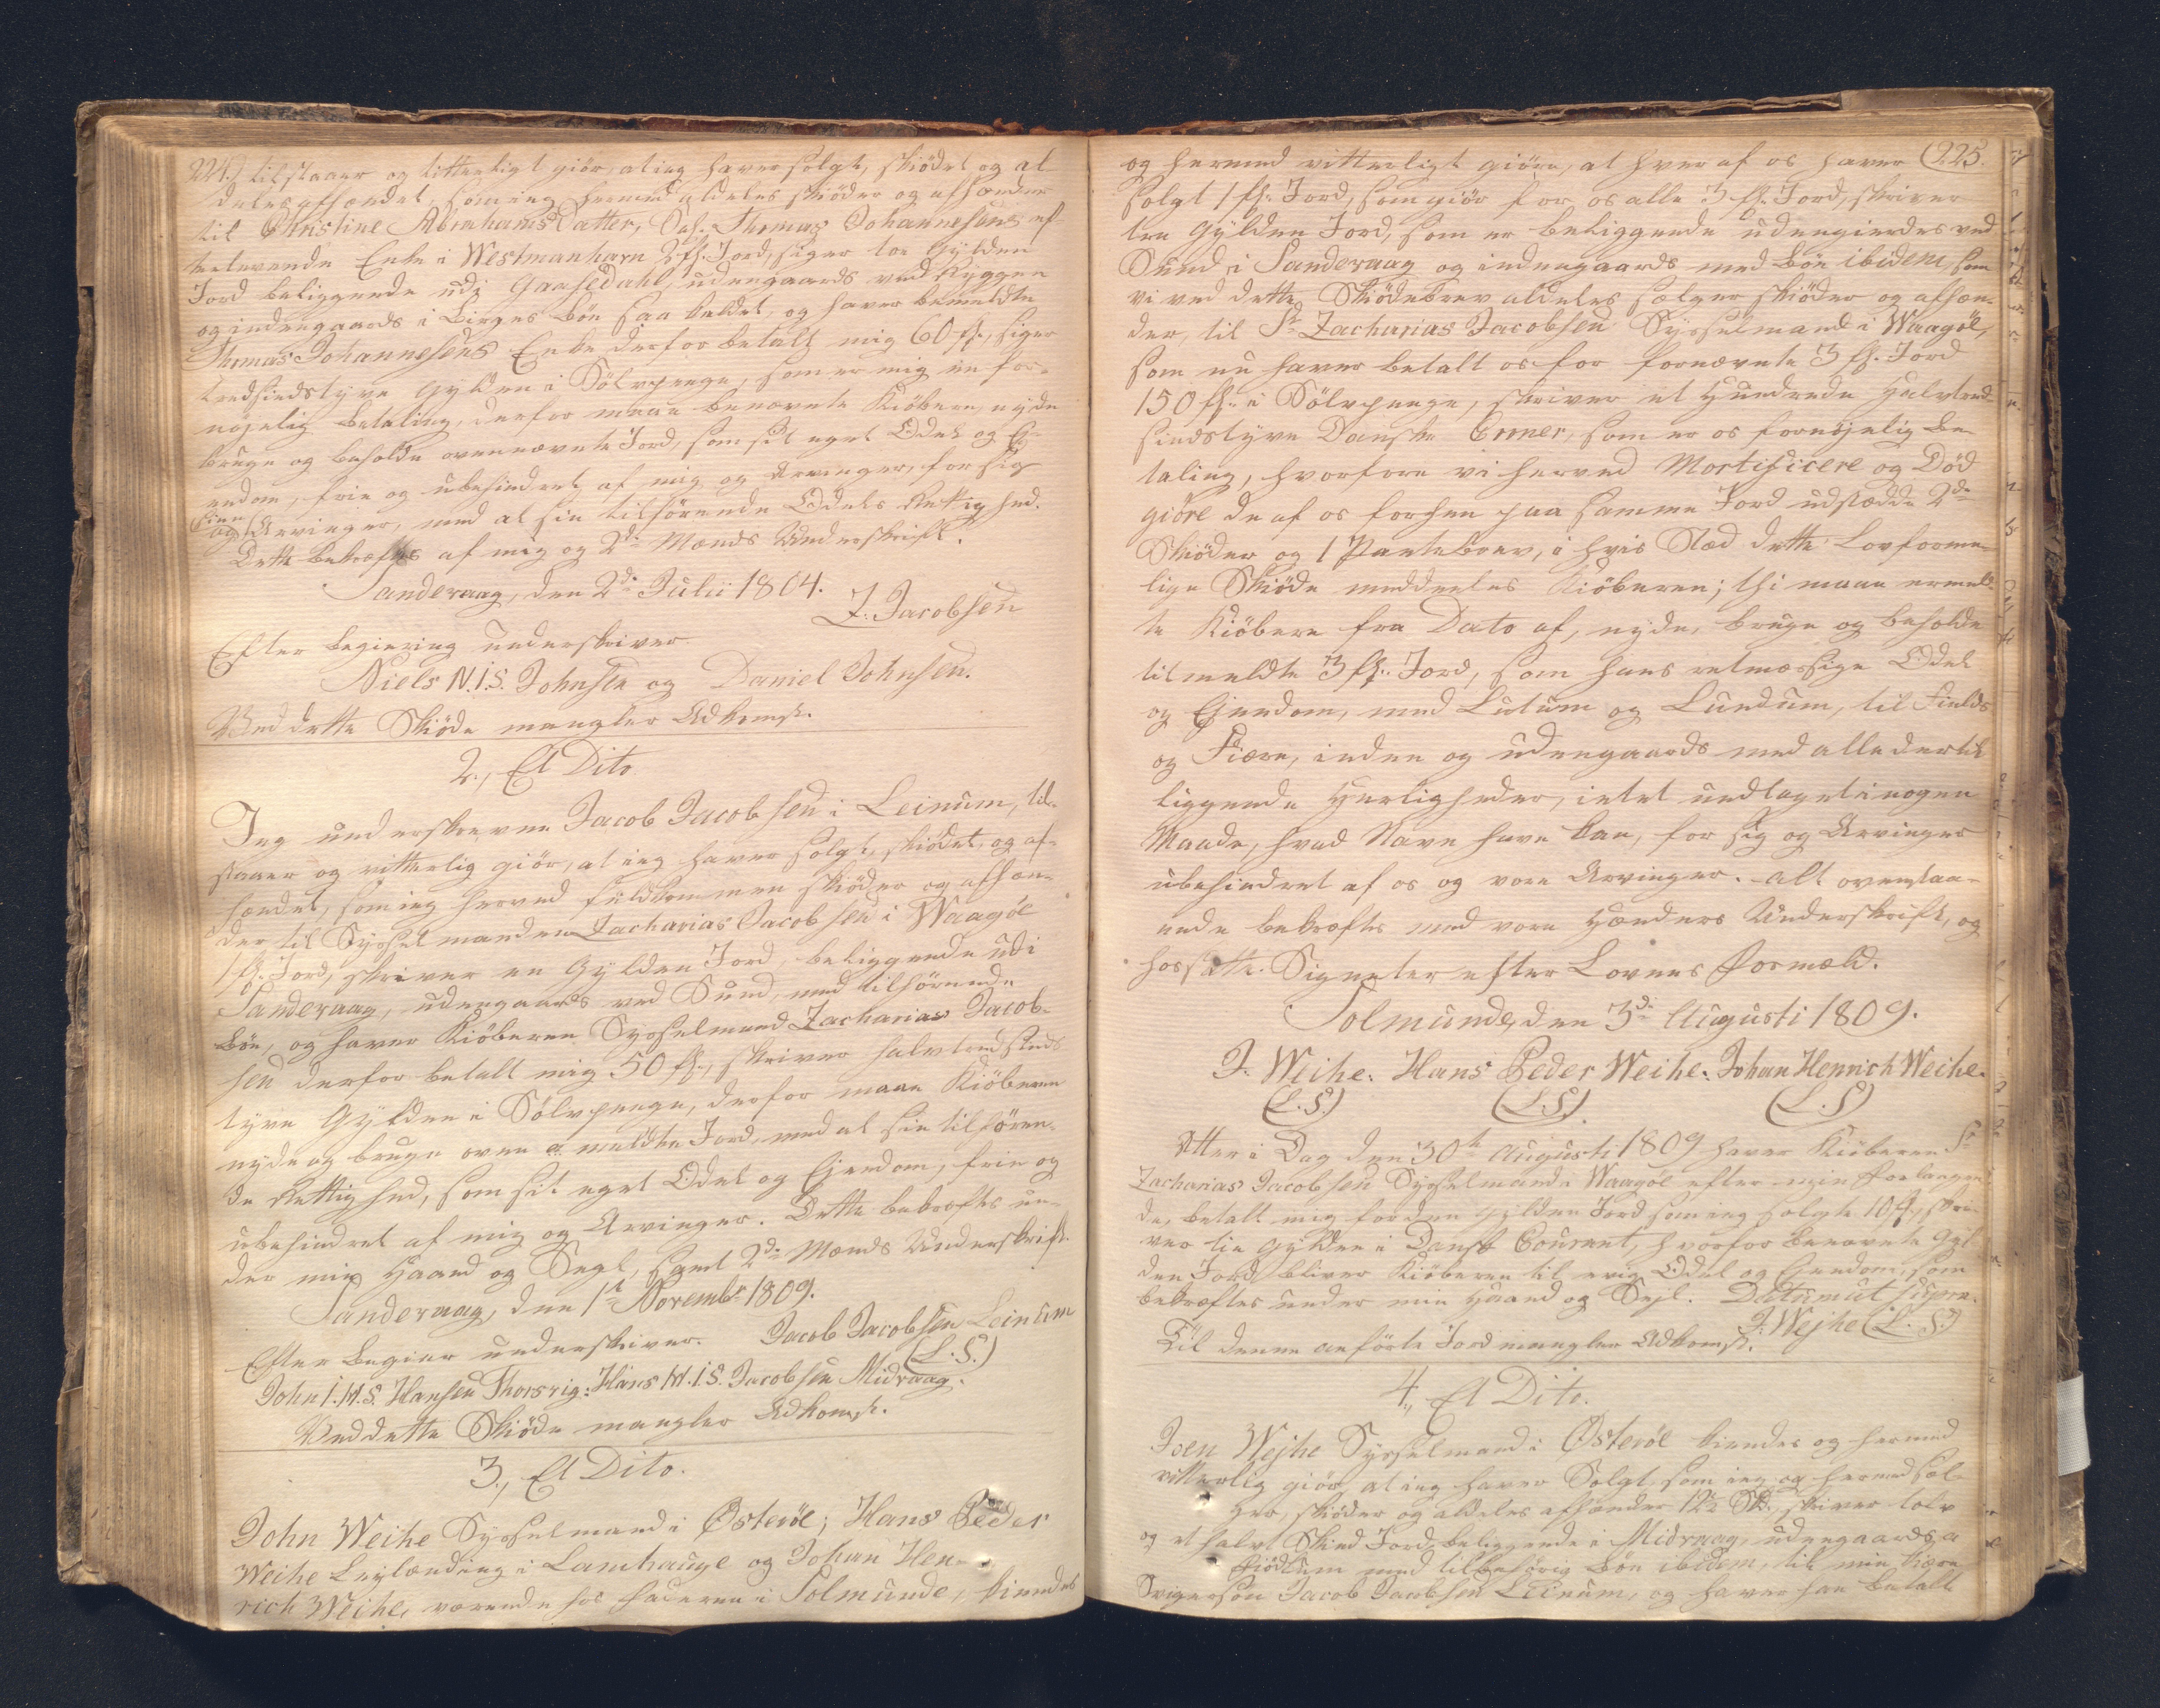 224.) tilstaaer og vitterligt giör, at ieg haver solgt, skiödet og al-
deles afhændet, som ieg hermed aldeles skiöder og afhænder
til Christine AbrahamsDatter, Sal. Thomas Johannesens ef-
terlevende Enke i Westmanhavn 2 fl. Jord, siger toe Gylden
Jord beliggende udi Gaasedahl, udengaards ved Ryggen
og indengaards i Birges Böe saa kaldet, og haver bemeldte
Thomas Johannesens Enke derfor betalt mig 60 fl., siger
tredsindstyve Gylden i Sölvpenge, som er mig en for-
nöjelig betaling, derfor maae benævnte Kiöbere, nyde
bruge og beholde ovennævnte Jord, som sit eget Odel og Ej-
endom, frie og ubehindret af mig og Arvinger, for sig
og sine Arvinger, med al sin tilhörende Odels Rettighed.
Dette bekræftes af mig og 2de Mænds Underskrift.
Sanderaag, den 2de Julii 1804.
Z. Jacobsen
Efter begiering underskriver
Niels N.I.S. Johnsen og Daniel Johnsen.
Ved dette Skiöde mangler Adkomst.
2, Et Dito
Jeg underskrevne Jacob Jacobsen i Leinum, til-
staaer og vitterlig giör, at ieg haver solgt, skiödet, og af-
hændet, som ieg herved fuldkommen skiöder og afhæn-
der til Sysselmanden Zacharias Jacobsen i Waagöe
1 fl. Jord, skriver en Gylden Jord, beliggende udi
Sanderaag, udengaards ved Sund, med tilhörende
Böe, og haver Kiöberen Sysselmand Zacharias Jacob-
sen derfor betalt mig 50 fl., skriver halvtredsinds
tyve Gylden i Sölvpenge, derfor maae Kiöberen
nyde og bruge oven meldte Jord, med al sin tilhören-
de Rettighed, som sit eget Odel og Ejendom, frie og
ubehindret af mig og Arvinger. Dette bekræftes un-
der min Haand og Segl, samt 2de Mænds Underskrift.
Sanderaag, den 1te Novembr 1809.
Efter begier underskriver. Jacob Jacobsen Leinum
(L.S.)
John I.H.S. Hansen Thorsvig: Hans H.I.S. Jacobsen Midvaag.
Ved dette Skiöde mangler Adkomst.
3, Et Dito.
John Weihe Sysselmand i Österöe; Hans Peder
Weihe Leylænding i Lamhauge og Johan Hen-
rich Weihe, værende hos Faderen i Solmunde, kiendes
og hermed vitterligt giöre, at hver af os haver (225.
solgt 1 fl. Jord, som giör for os alle 3 fl. Jord, skriver
tre Gylden Jord, som er beliggende udengierdes ved
Sund i Sanderaag og indengaards med Böe ibidem, som
vi ved dette Skiödebrev aldeles sælger skiöder og afhæn-
der, til Sr Zacharias Jacobsen Sysselmand i Waagöe,
som nu haver betalt os for fornævnte 3 fl. Jord
150 fl. i Sölvpenge, skriver et Hundrede Halvtred-
sindstyve Danske Croner, som er os fornöjelig be-
taling, hvorfore vi herved Mortificere og Död
giöre de af os forhen paa samme Jord udstædde 2de
Skiöder og 1 Pantebrev, i hvis Stæd dette Lovforme-
lige Skiöde meddeeles Kiöberen; thi maae ermeld-
te Kiöbere fra Dato af, nyde, bruge og beholde
til meldte 3 fl. Jord, som hans retmæssige Odel
og Ejendom, med Lutum og Lundum, til Fields
og Fiære, inden og udengaards med alle dertil
liggende Herligheder, intet undtaget i nogen
Maade, hvad Navn have kan, for sig og Arvinger
ubehindret af os og vore Arvinger. Alt ovenstaa-
ende bekræftes med vore Hænders Underskrift, og
hossatte Signeter efter Lovens Formæld.
Solmunde, den 3de Augusti 1809.
J. Weihe. Hans Peder Weihe. Johan Henrich Weihe.
(L.S.) (L.S.) (L.S.)
Atter i Dag den 30te Augusti 1809 haver Kiöberen Sr
Zacharias Jacobsen Sysselmand i Waagöe efter min Forlangen-
de, betalt mig for den Gylden Jord som ieg solgte 10 fl., skri-
ver tie Gylden i Dansk Courant, hvorfor benævnte Gyl-
den Jord bliver Kiöberen til evig Odel og Ejendom, som
bekræftes under min Haand og Sejl. Datum ut supra.
J. Wejhe (L.S.)
Til denne anförte Jord mangler Adkomst.
4, Et Dito.
Joen Wejhe Sysselmand i Österöe kiendes og hermed
vitterlig giör, at ieg haver Solgt, som ieg og hermed sæl-
ger, skiöder og aldeles afhænder 12½ Sk., skriver tolv
og et halvt Skind Jord, beliggende i Midvaag, udengaards a
Fiödlum med tilbehörig Böe ibidem, til min kiære
Svigersön Jacob Jacobsen Leinum, og haver han betalt